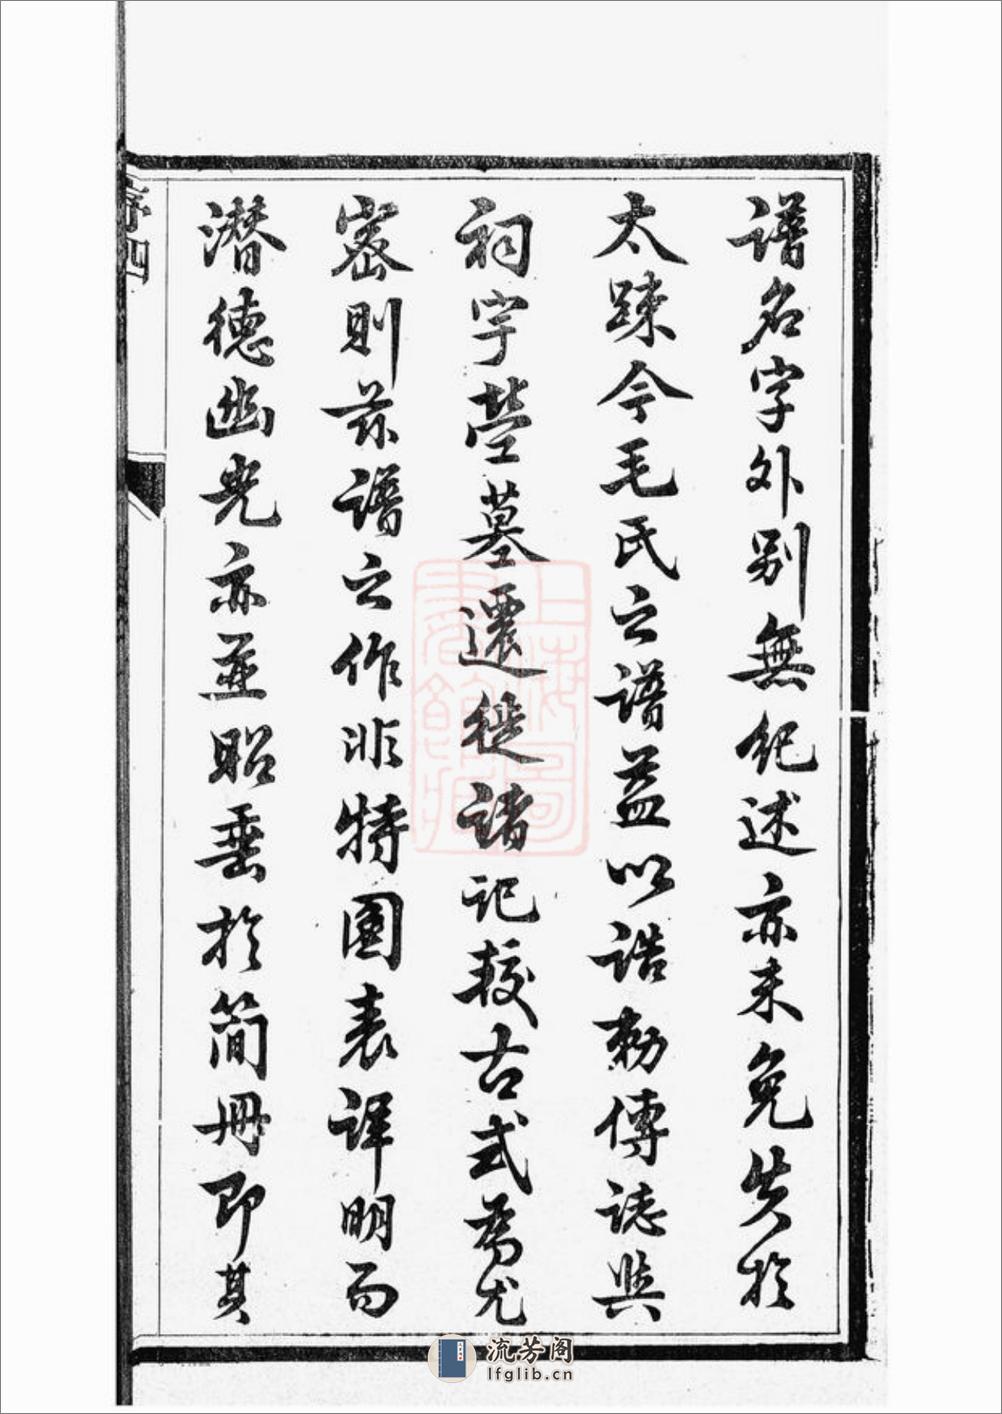 譜名字外别無紀述亦未免失於
太踈今毛氏之譜益以誥勅傳誌與
祠宇塋墓遷徙諸記較古式為尤
密則茲譜之作非特圖表詳明而
潜德幽光亦並昭垂於简冊即其
序四
上海圖書館藏
流芳阁
lfglib.cn